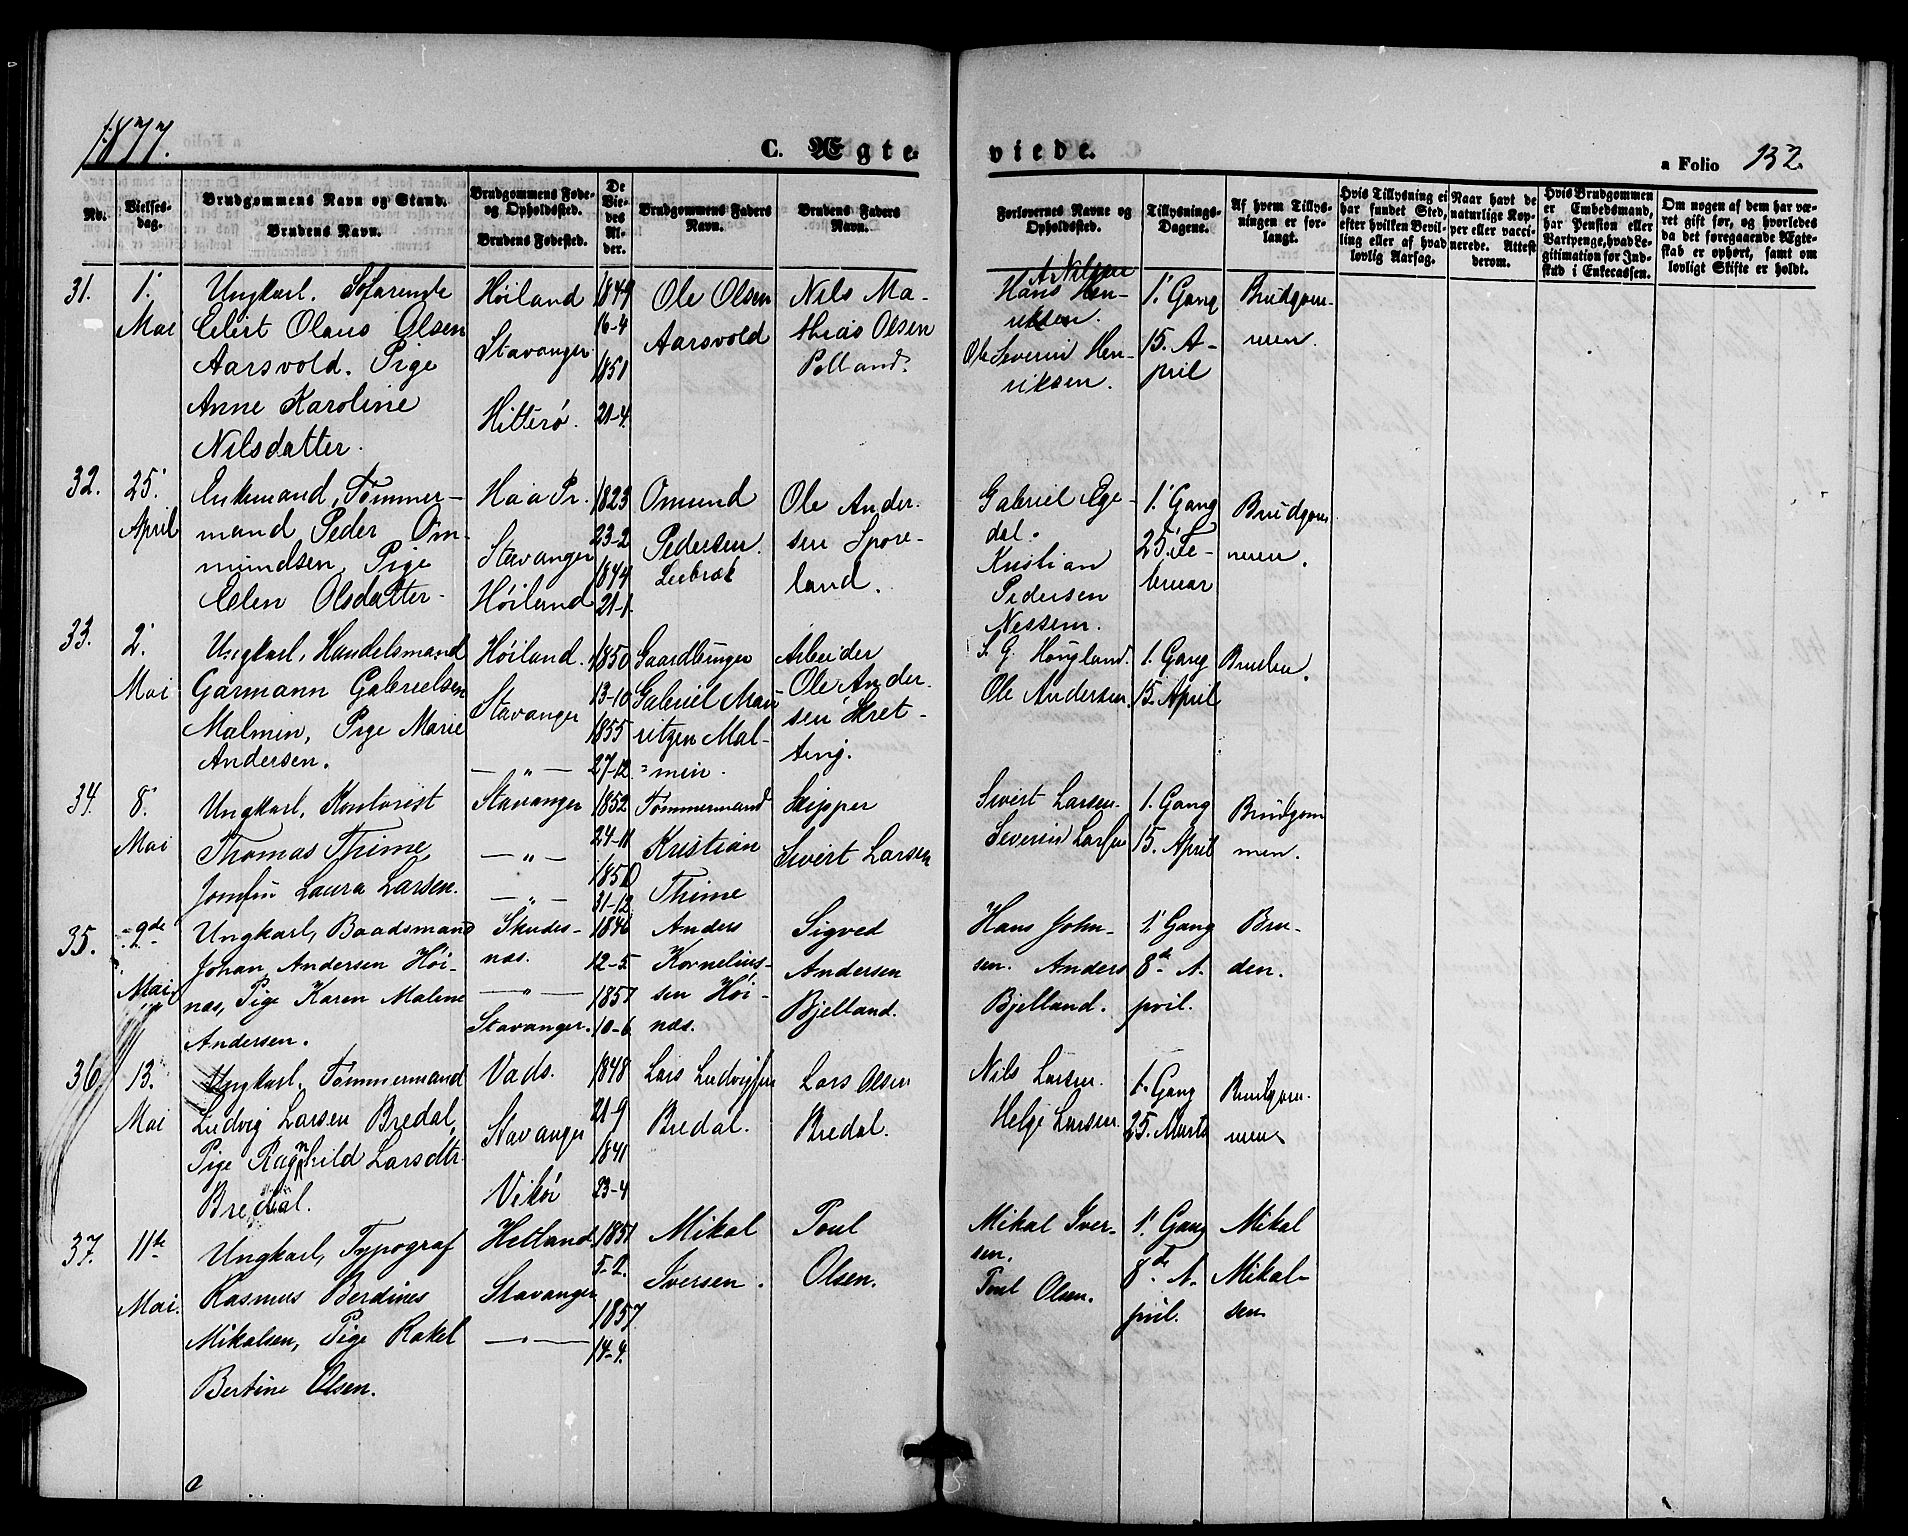 1877.
C. Ægteviede.
a Folio 132.
No.
Vielsesdag.
Brudgommens Navn og Stand.
Brudens Navn.
Brudgommens Føde- og Opholdssted.
Brudens Fødested.
De Viedes Alder.
Brudgommens Faders Navn.
Brudens Faders Navn.
Forlovernes Navne og Opholdssted.
Tillysnings-Dagene.
Af hvem Tillysningen er forlangt.
Hvis Tillysning ei har fundet Sted, efter hvilken Bevilling eller af hvad lovlig Aarsag.
Naar havt de naturlige Kopper eller vaccinerede. Attest derom.
Hvis Brudgommen er Embedsmand, har Pension eller Vartpenge, hvad Legitimation for Indskud i Enkecassen.
Om nogen af dem har været gift før, og hvorledes da det foregaaende Ægteskab er ophørt, samt om lovligt Skifte er holdt.
31.
1.
Mai
Ungkarl. Søfarende
Eilert Olaus Olsen
Aarsvold. Pige
Anne Karoline
Nilsdatter.
Høiland
Stavanger
Hitterø.
1849
16-4
1851
21-4
Ole Olsen
Aarsvold
Nils Ma-
thias Olsen
A. Nilsen
Hans Hen-
riksen.
Ole Severin Hen-
riksen.
1. Gang
15. A-
pril
Brudgom-
men.
32.
25.
April
Enkemand, Tømmer-
mand Peder Om-
mundsen, Pige
Elen Olsdatter
Haa Pr.
Stavanger
Høiland
1823
23-2
1844
21-1
Omund
Pedersen
Ole Ander-
sen Spore-
land.
Gabriel Ege-
dal.
Kristian
Pedersen
Nessem.
1. Gang
25. Fe-
bruar
Brudgom
men.
33.
2.
Mai
Ungkarl, Handelsmand
Garmann Gabrielsen
Malmin, Pige Marie
Andersen.
Høiland.
Stavanger
— „ —
1850
13-10
1855
27-12
Gaardbruger
Gabriel Mau-
ritzen Mal-
min.
Arbeider
Ole Ander-
sen Skret-
ting.
S. G. Høugland.
Ole Andersen.
1. Gang
15. April
Bruden.
34.
8.
Mai
Ungkarl, Kontorist
Thomas Thime,
Jomfru Laura Larsen.
Stavanger
— „ —
— „ —
1852
24-11
1850
31-12
Tømmermand
Kristian
Thime
Skipper
Sivert Larsen
Sivert Larsen.
Severin Larsen
1. Gang
15. April
Brudgom
men.
35.
9de
Mai
Ungkarl, Baadsmand
Johan Andersen Høi-
næs, Pige Karen Maline
Andersen.
Skudes-
næs.
— „ —
Stavanger.
1846
12-5
1857
10-6
Anders
Kornelius-
sen Høi-
næs.
Sigved
Andersen
Bjelland.
Hans John-
sen. Anders
Bjelland.
1. Gang
8de A-
pril.
Bru-
den.
36.
13.
Mai
Ungkarl, Tømmermand
Ludvig Larsen Bredal,
Pige Ragnhild Larsdtr.
Bredal.
Vads.
Stavanger
Vikør
1848
21-9
1841
23-4
Lars Ludvigsen
Bredal.
Lars Olsen
Bredal.
Nils Larsen.
Helge Larsen.
1. Gang
25. Marts
Brudgom-
men.
37.
11te
Mai.
Ungkarl, Typograf
Rasmus Berdines
Mikalsen, Pige Rakel
Bertine Olsen.
Hetland
Stavanger
— „ —
1851
5-2.
1857
14-4.
Mikal
Iversen.
Poul
Olsen.
Mikal Iver-
sen.
Poul Olsen.
1. Gang
8de A-
pril.
Mikal
Mikal-
sen